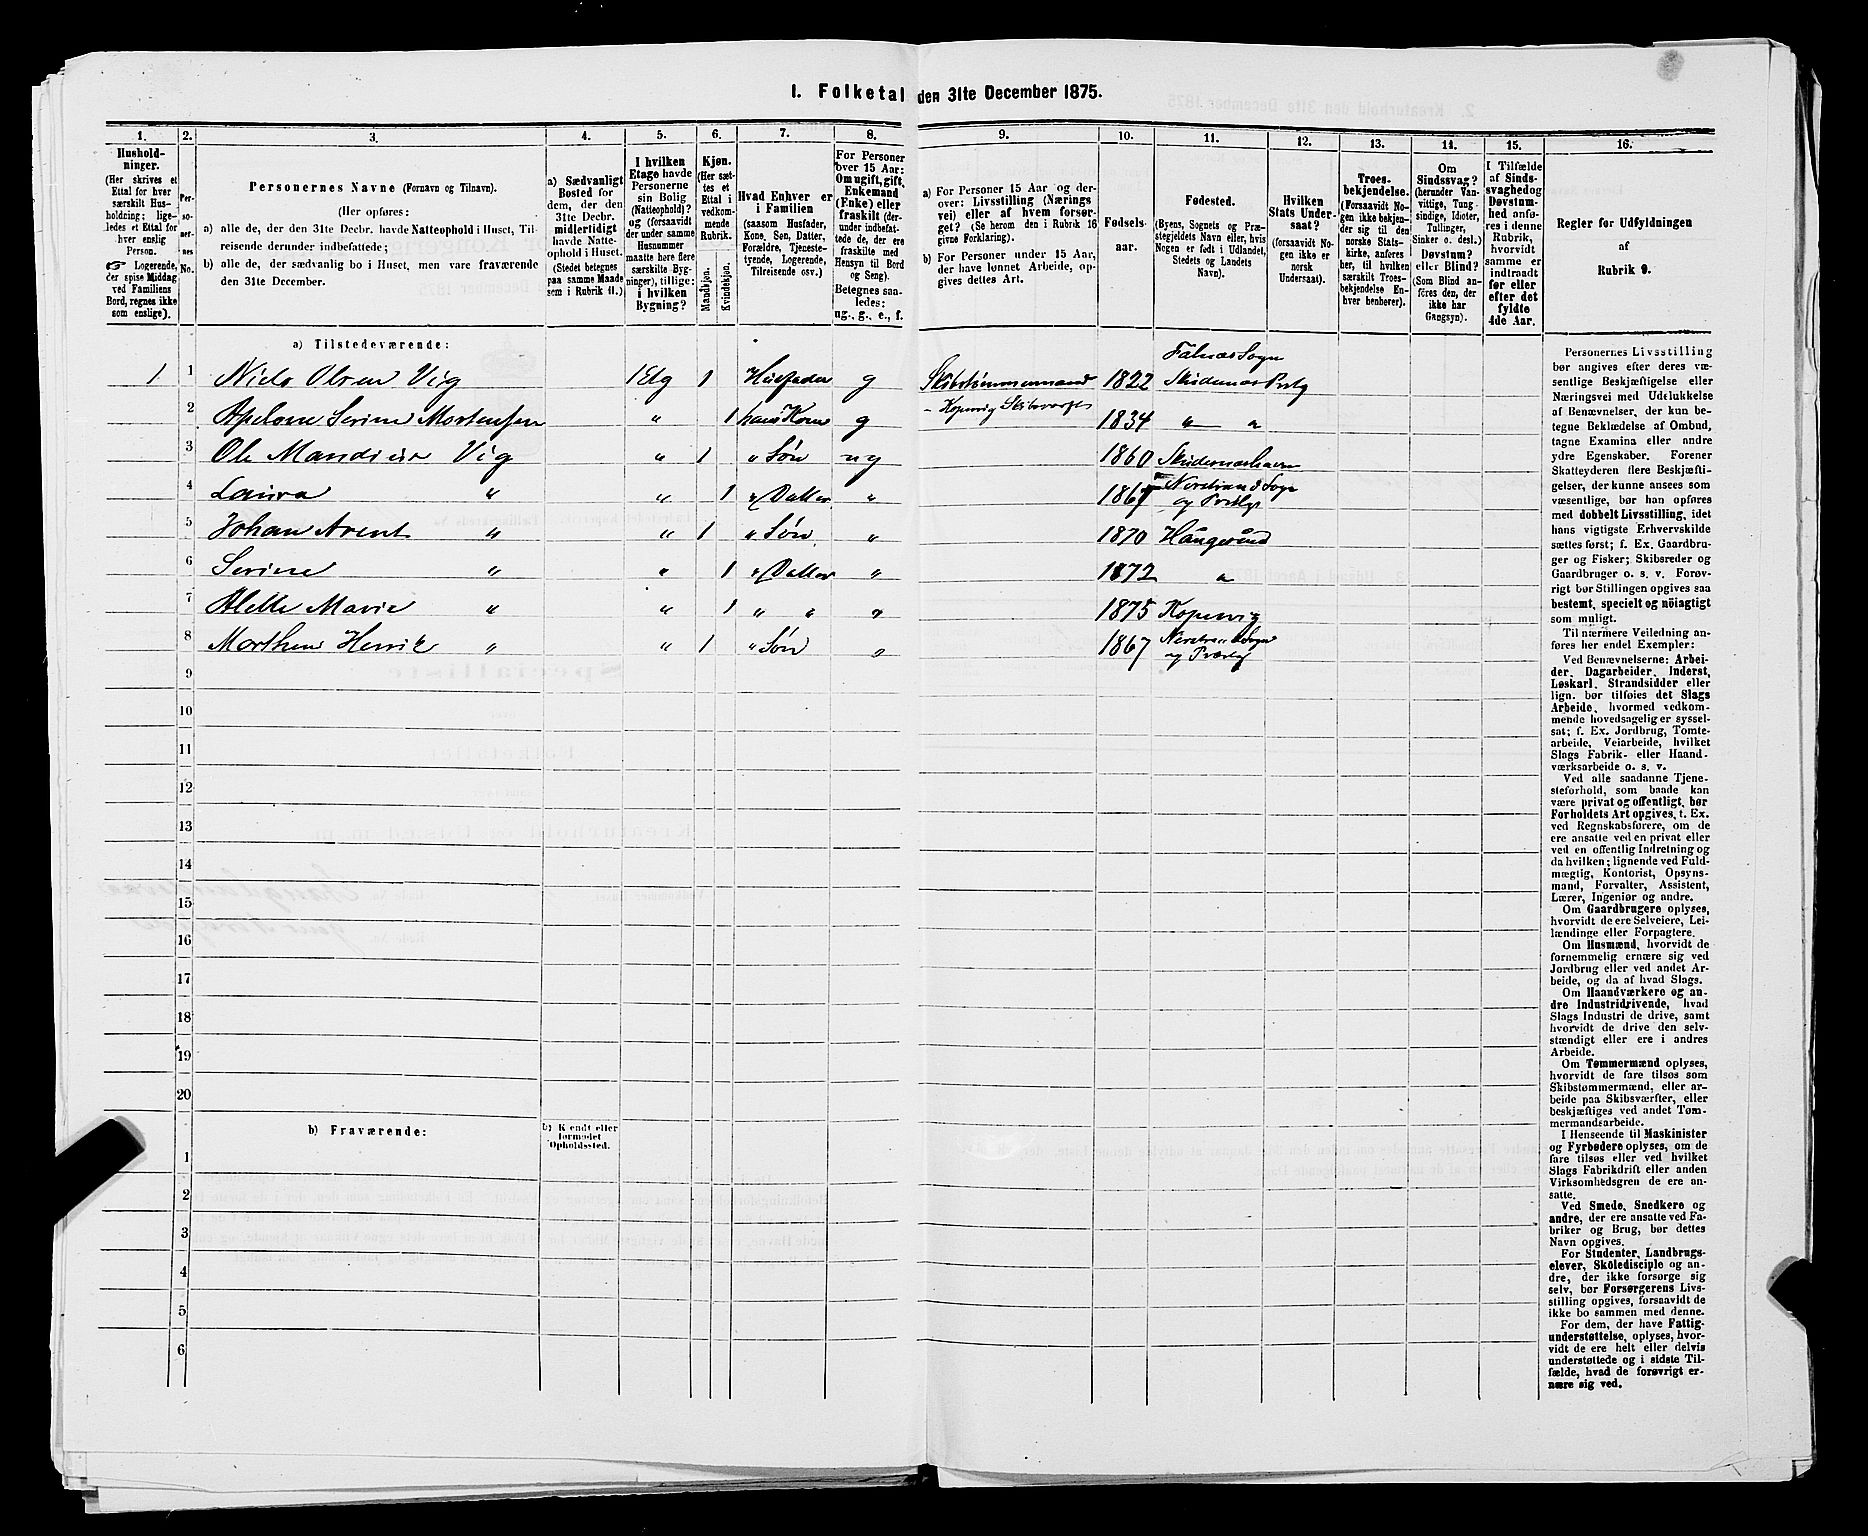 1. Folketal den 31te December 1875.
1.
2.
3.
4.
5.
6.
7.
8.
9.
10.
11.
12.
13.
14.
15.
16.
Hushold-
ninger.
(Her skrives et
Ettal for hver
særskilt Hus-
holdning; lige-
ledes et Ettal for
hver enslig
Person.
☞ Logerende,
der spise Middag
ved Familiens
Bord, regnes ikke
som enslige).
Per-
so-
ner-
nes
No.
Personernes Navne (Fornavn og Tilnavn).
(Her opføres:
a) alle de, der den 31te Decbr. havde Natteophold i Huset, Til-
reisende derunder indbefattede;
b) alle de, der sædvanlig bo i Huset, men vare fraværende
den 31te December.
a) Sædvanligt
Bosted for
dem, der den
31te Decbr.
midlertidigt
havde Natte-
ophold i Huset.
(Stedet betegnes
paa samme Maade
som i Rubrik 11.)
I hvilken
Etage havde
Personerne
sin Bolig
(Natteophold)?
og (forsaavidt
der under samme
Husnummer
maatte høre flere
særskilte Byg-
ninger), tillige:
i hvilken
Bygning?
Kjøn.
(Her sæt-
tes et
Ettal i
vedkom-
mende
Rubrik.
Mandkjøn.
Kvindekjøn.
Hvad Enhver er
i Familien
(saasom Husfader,
Kone, Søn, Datter,
Forældre, Tjeneste-
tyende, Logerende,
Tilreisende osv.)
For Personer
over 15 Aar:
Om ugift, gift,
Enkemand
(Enke) eller
fraskilt (der-
under indbefat-
tede de, der ere
fraskilte med
Hensyn til Bord
og Seng).
Betegnes saa-
ledes:
ug., g., e., f.
a) For Personer 15 Aar og der-
over: Livsstilling (Nærings
vei) eller af hvem forsør-
get? (Se herom den i Rubrik 16
givne Forklaring).
b) For Personer under 15 Aar,
der have lønnet Arbeide, op-
gives dettes Art.
Fødsels-
aar.
Fødested.
(Byens, Sognets og Præ-
stegjeldets Navn eller, hvis
Nogen er født i Udlandet,
Stedets og Landets
Navn).
Hvilken
Stats Under-
saat?
(forsaavidt No-
gen ikke er
norsk
Undersaat).
Troes-
bekjendelse.
(Forsaavidt No-
gen ikke bekjen-
der sig til den
norske Stats-
kirke, anføres
her, til hvilken
særskilt Troes-
bekjendelse En-
hver henhører).
Om
Sindssvag?
(herunder Van-
vittige, Tung-
sindige, Idioter,
Tullinger,
Sinker o. desl.)
Døvstum?
eller Blind?
(Som Blind an-
føres den, der
ikke har
Gangsyn).
I Tilfælde
af Sinds-
svaghed og
Døvstum-
hed anfø-
res i denne
Rubrik,
hvorvidt
samme er
indtraadt
før eller
efter det
fyldte
4de Aar.
Regler for Udfyldningen
af
Rubrik 9.
a) Tilstedeværende:
Falnæs Sogn
1 1 Niels Olsen Vig 1 Etg 1 Husfader g Skibstømmermand 1822 Skudenæs Prstg
2 Apelone Serine Mortensen " 1 hans Kone g - Kopervig Skibsværft 1834 " "
3 Ole Mandius Vig " 1 " Søn ug 1860 Skudenæshavn
4 Laura " " 1 " Datter " Nerstrand Sogn
og Prstgj
5 Johan Arent " " 1 " Søn " 1870 Haugesund
6 Serine " " 1 " Datter " 1872 "
7 Alette Marie " " 1 " " " 1875 Kopervig
8 Morthen Henrik " " 1 " Søn " 1867 Nerstrand Sogn
og Præstg
9
10
11
12
13
14
15
16
17
18
19
20
b) Fraværende:
b) Kjendt eller
formodet
Opholdssted.
1
2
3
4
5
6
Personernes Livsstilling
bør angives efter deres væ-
sentlige Beskjæftigelse eller
Næringsvei med Udelukkelse
af Benævnelser, der kun be-
tegne Beklædelse af Ombud,
tagne Examina eller andre
ydre Egenskaber. Forener
Skatteyderen flere Beskjæfti-
gelser, der kunne ansees som
væsentlige, bør han opføres
med dobbelt Livsstilling, idet
hans vigtigste Erhvervskilde
sættes først; f. Ex. Gaardbru-
ger og Fisker; Skibsreder og
Gaardbruger o. s. v. Forøv-
rigt bør Stillingen opgives saa
bestemt, specielt og nöiagtigt
som muligt.
Til nærmere Veiledning an-
føres her endel Exempler:
Ved Benævnelserne: Arbei-
der, Dagarbeider, Inderst,
Løskarl, Strandsidder eller
lign. bør tilføies det Slags
Arbeide, hvormed vedkom-
mende hovedsagelig er syssel-
sat; f. Ex. Jordbrug, Tomte-
arbeide, Veiarbeide, hvilket
Slags Fabrik- eller Haand-
værksarbeide o. s. v.
Ved alle saadanne Tjene-
steforhold, som baade kan
være privat og offentligt, bør
Forholdets Art opgives, t. Ex.
ved Regnskabsførere, om de
ere ansatte ved en privat eller
ved en offentlig Indretning og
da hvilken; lignende ved Fuld-
mægtig, Kontorist, Opsyns-
mand, Forvalter, Assistent,
Lærer, Ingeniør og andre.
Om Gaardbrugere oplyses,
hvorvidt de ere Selveiere, Lei-
lændinge eller Forpagtere.
Om Husmænd, hvorvidt de
fornemmelig ernære sig ved
Jordbrug eller ved andet Ar-
beide, og da af hvad Slags.
Om Haandværkere og an-
dre Industridrivende, hvad
Slags Industri de drive, samt
hvorvidt de drive den selv-
stændigt eller ere i andres
Arbeide.
Om Tømmermænd oplyses,
hvorvidt de fare tilsøs som
Skibstømmermænd, eller ar-
beide paa Skibsværfter, eller
beskjæftiges ved andet Tøm-
mermandsarbeide.
I Henseende til Maskinister
og Fyrbødere oplyses, om de
fare tilsøs eller ved hvilket
Slags Fabrikdrift eller anden
Virksomhedsgren de ere an-
satte.
Ved Smede, Snedkere og
andre, der ere ansatte ved Fa-
briker og Brug, bør dettes
Navn opgives.
For Studenter, Landbrugs-
elever, Skoledisciple og an-
dre, der ikke forsørge sig
selv, bør Forsørgerens Livs-
stilling opgives, forsaavidt de
ikke bo sammen med denne.
For dem, der have Fattig-
understøttelse, oplyses, hvor-
vidt de ere helt eller delvis
understøttede og i sidste Til-
fælde, hvad de forøvrigt er-
nære sig ved.